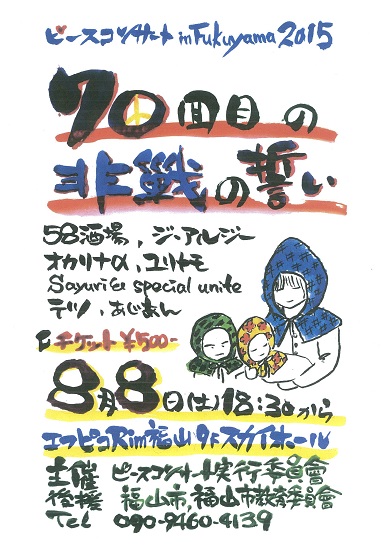 ピースコンサート in Fukuyama 2015
70回目の
非戦の誓い
58酒場、ジ・アルジー
オカリナα、ユリトモ
Sayuri's special unite
テツ、あじまん
チケット ¥500-
8月8日(土)18:30から
エフピコRim福山9Fスカイホール
主催 ピースコンサート実行委員會
後援 福山市,福山市教育委員會
Tel 090-9460-4139